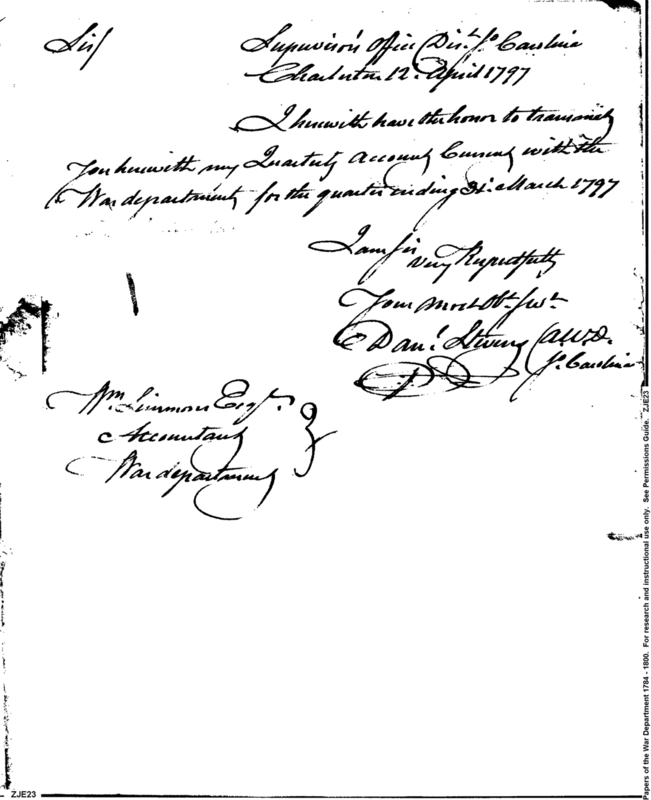 Sir/
Supervisor's Office Dist. So. Carolina
Charleston 12. April 1797
I herewith have the honor to transmit
You herewith my Quarterly Account Current with the
War department, for the quarter ending 31st. March 1797
I am Sir
Very Respectfully
Your Most Obt. Servt.
Danl. Stevens A.W.D.
So. Carolina
Wm. Simmons Esqr.
Accountant
War department
ZJE23
Papers of the War Department 1784 - 1800. For research and instructional use only. See Permissions Guide. ZJE23